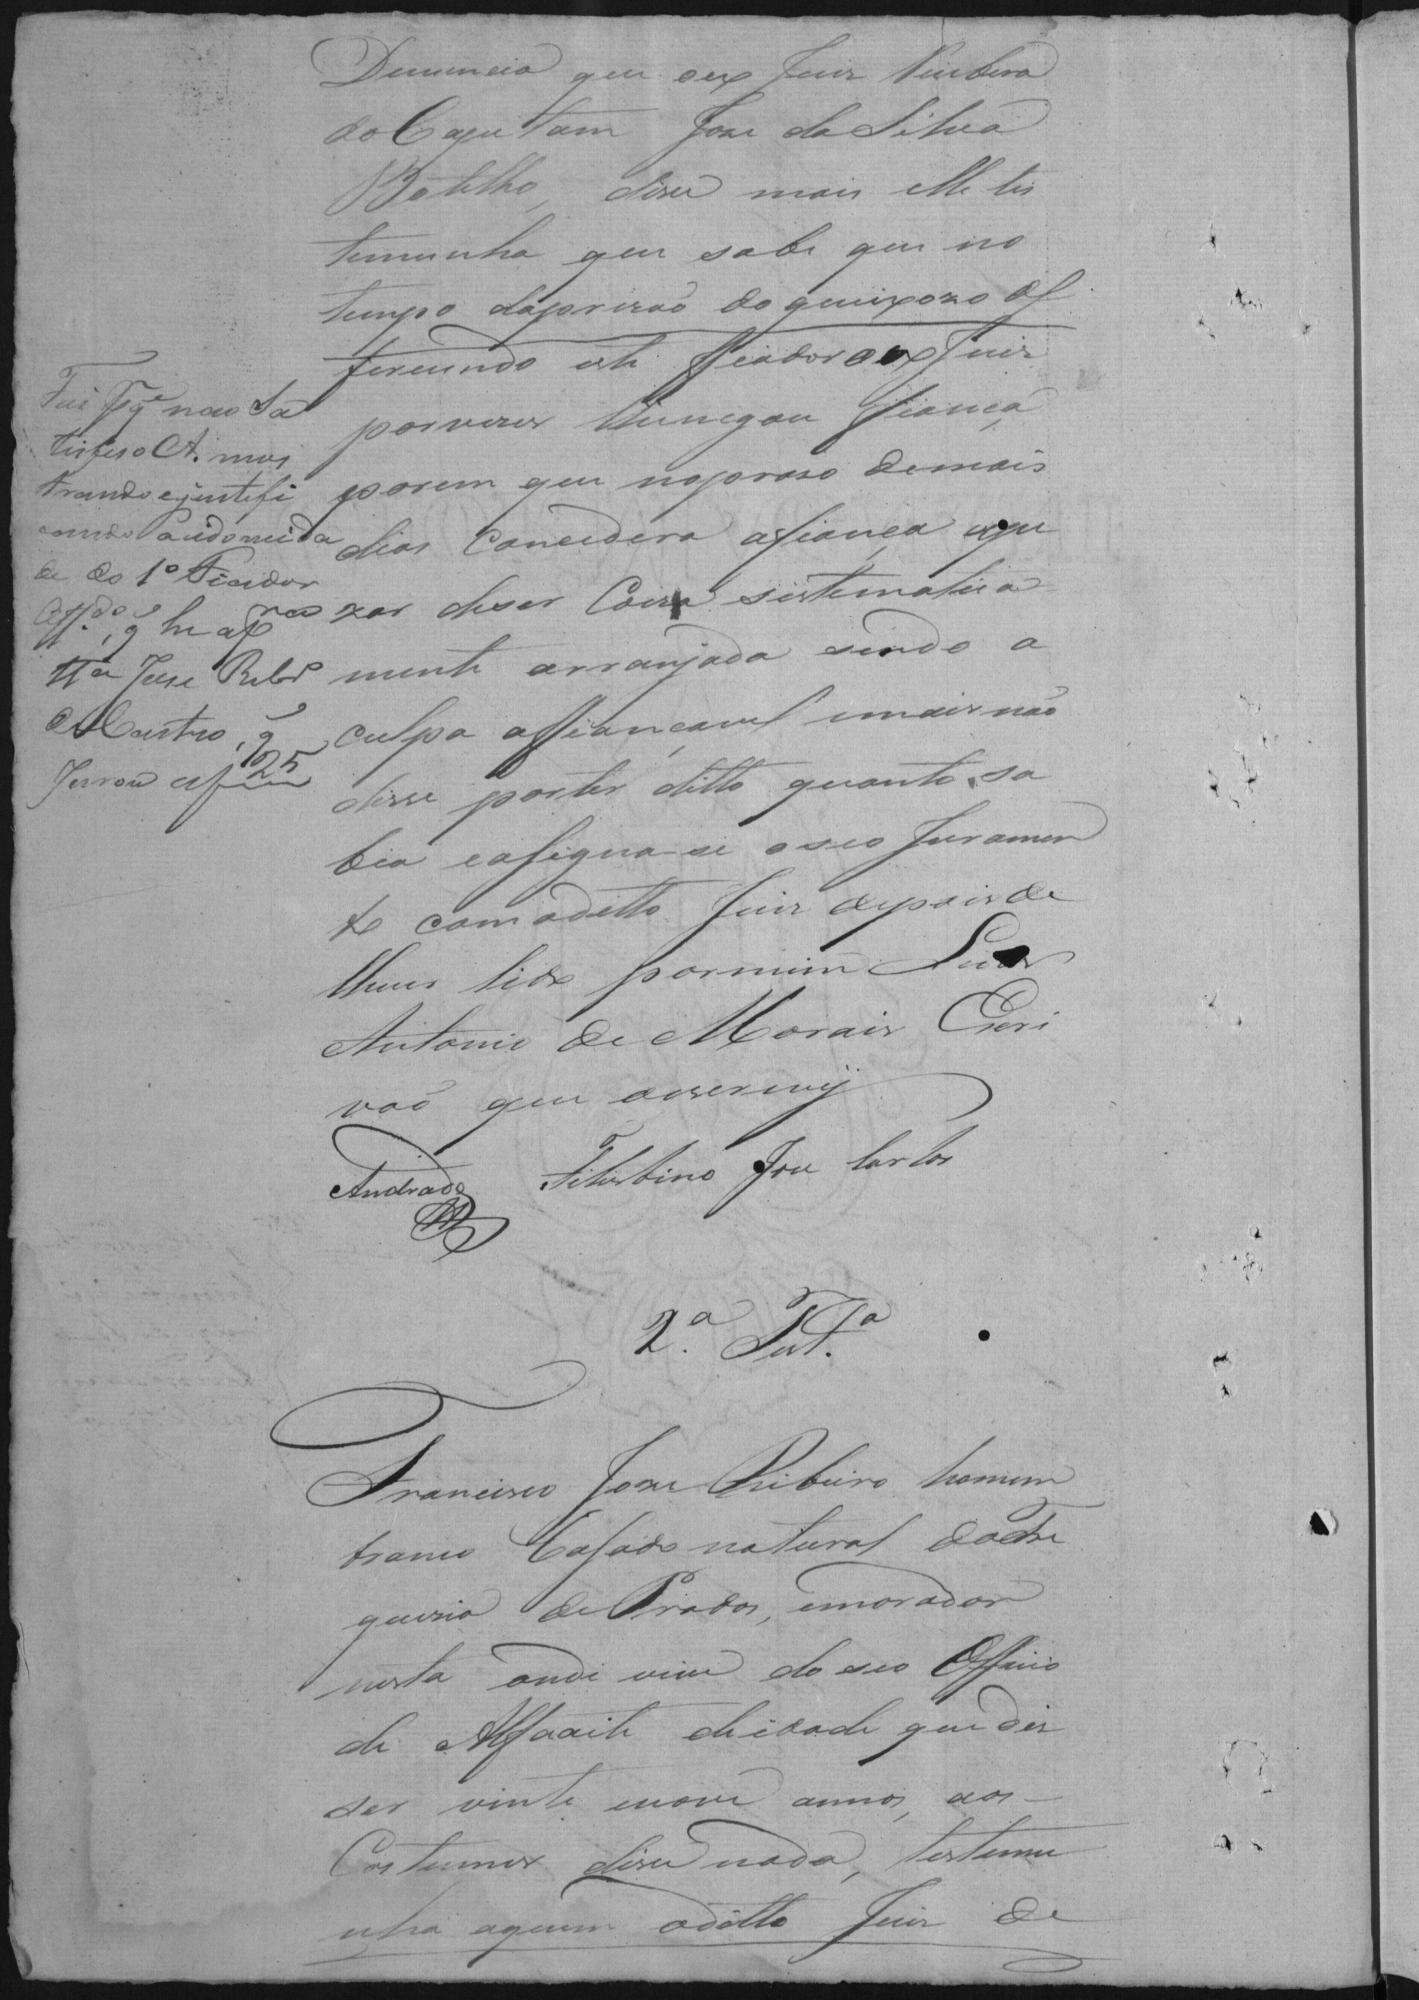 Denuncia que o ex Juis recebera
do Capitam Joze da Silva
Botelho, dise mais elle tes
temunha que sabe que no
tempo daprizaõ do queixozo of
ferecendo este fiador o ex Juis
porvezes lhenegou fiança
porem que noprazo demais
dias concedera afiança oque
zar diser Coiza sistematica
mente arranjada sendo a
culpa affiançavel emais naõ
disse porter ditto quanto sa
bia easigna-se o seo Juramen
to com oditto Juis depois de
lheser lido pormim Luis
Antonio de Morais Escri
vaõ que oescrevij
Andrade Felisbino Joze Carlos
Foi pq̃ naõ Sa
tisfes o A. mos
trando ejustifi
cando a idoneida
de do 1º Fiador
Off.do, q̃ he
Jose Rib.ro
de Castro, q̃
Jurou af 25
2.ª Test.ª
Francisco Joze Ribeiro homem
branco Cazado natural da Fre
guezia de Prados, emorador
nesta onde vive do seo Officio
de Alfaaite de idade que dis
ser vinte enove annos, aos
Costumes dise nada, testemu
nha aquem oditto Juis de